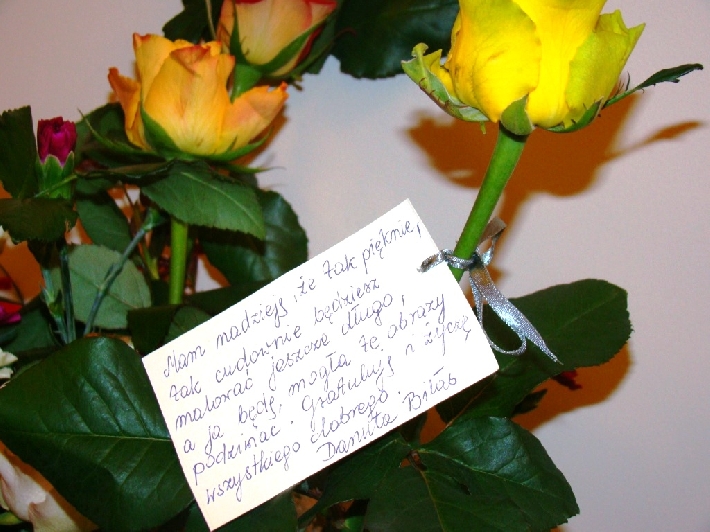 Mam nadzieję, że tak pięknie,
tak cudownie będziesz
malować jeszcze długo,
a ja będę mogła te obrazy
podziwiać. Gratuluję i życzę
wszystkiego dobrego.
Danuta Bitas